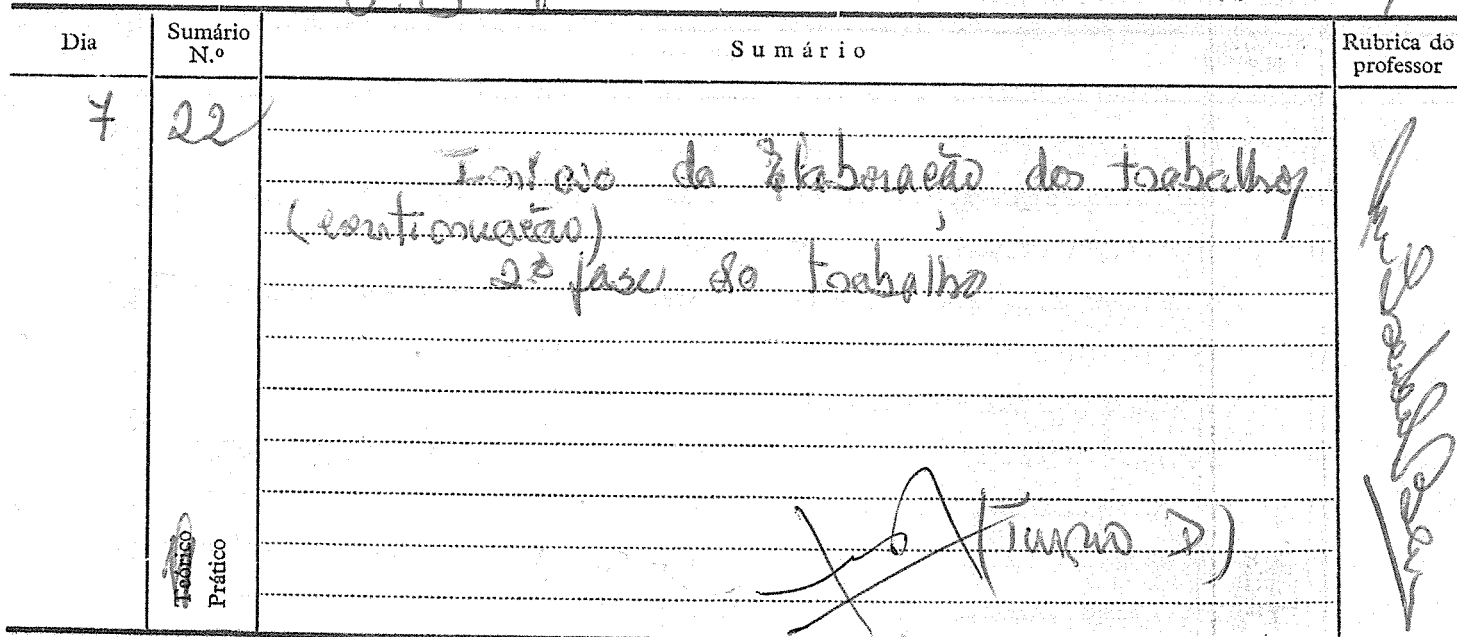 Dia
Sumário N.º
Sumário
Rubrica do professor
7
22
Início da Elaboração dos trabalhos
(continuação)
2ª fase do trabalho
(Turno D)
Teórico
Prático